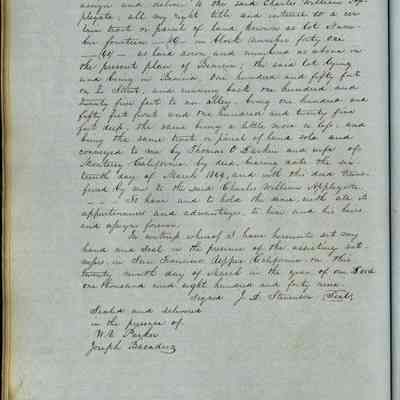 assign and deliver to the said Charles William Ap-
plegate, all my right title and interest to a cer-
tain tract or parcel of land known as lot num-
ber fourteen - 14 - in block number forty one
- 41 - as laid down and numbered as above in
the present plan of Benicia; the said lot lying
and being in Benicia, one hundred and fifty feet
on Street, and running back one hundred and
twenty five feet to an alley, being one hundred and
fifty feet front and one hundred and twenty five
feet deep, the same being a little more or less, and
being the same tract or parcel of land sold and
conveyed to me by Thomas O. Larkin and wife of
Monterey California by deed bearing date the six
teenth day of March 1849, and with this deed trans-
ferred by me to the said Charles William Applegate.
- - - To have and to hold the same with all its
appurtenances and advantages to him and his heirs
and assigns forever.
In witness whereof I have hereunto set my
hand and seal in the presence of the assisting wit-
nesses in San Francisco Upper California on this
twenty ninth day of March in the year of our Lord
one thousand and eight hundred and forty nine.
Signed J. A. (Seal)
Sealed and delivered
in the presence of
W. R. Parker
Joseph